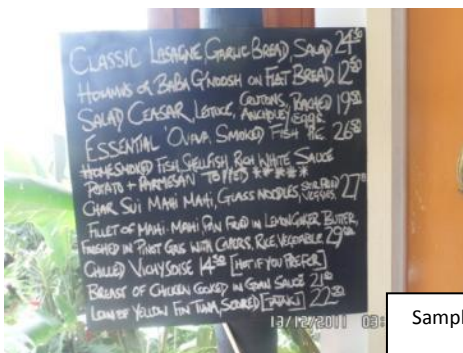 CLASSIC LASAGNE, GARLIC BREAD, SALAD 24.50
HOUMUS OR BABA G'NOOSH ON FLAT BREAD 12.50
SALAD CEASAR, LETTUCE, CROUTONS, POACHED EGGS, ANCHOVEY 19.50
ESSENTIAL 'OVAVA, SMOKED FISH PIE 26.50
HOMESMOKED FISH, SHELLFISH, RICH WHITE SAUCE
POTATO + PARMESAN TOPPED *****
CHAR SUI MAHI MAHI, GLASS NOODLES, VEGGIES 27
FILLET OF MAHI-MAHI PAN FRIED IN LEMON BUTTER,
FINISHED IN PINOT GRIS WITH CAPERS, RICE VEGETABLE 29
CHILLED VICHYSOISE 14.50 [HOT IF YOU PREFER]
BREAST OF CHICKEN COOKED IN GOAN SAUCE 21
LOIN OF YELLOW FIN TUNA, SEARED [TATAKI] 22.50
13/12/2011 03:
Sampl